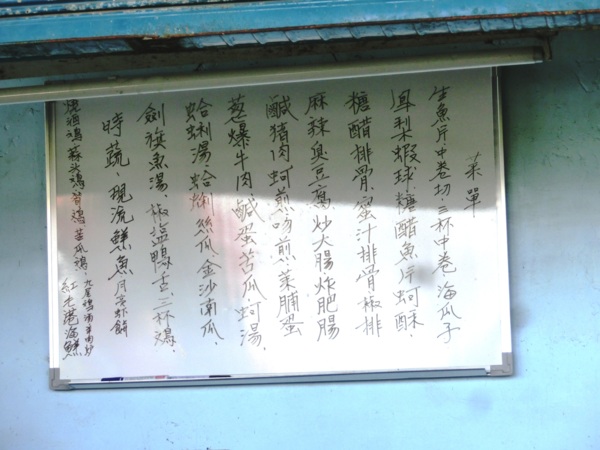 菜單
生魚片.中卷切.三杯中卷.海瓜子
鳳梨蝦球.糖醋魚片.蚵酥.
糖醋排骨.蜜汁排骨.椒排
麻辣臭豆腐.炒大腸.炸肥腸
鹹猪肉.蚵煎.吻煎.菜脯蛋
葱爆牛肉.鹹蛋苦瓜.蚵湯.
蛤蜊湯.蛤蜊絲瓜.金沙南瓜.
劍旗魚湯.椒塩鴨舌.三杯鷄.
時蔬、現流鮮魚.月亮虾餅
燒酒鷄.蒜頭鷄.苦瓜鷄.
紅毛港海鱻